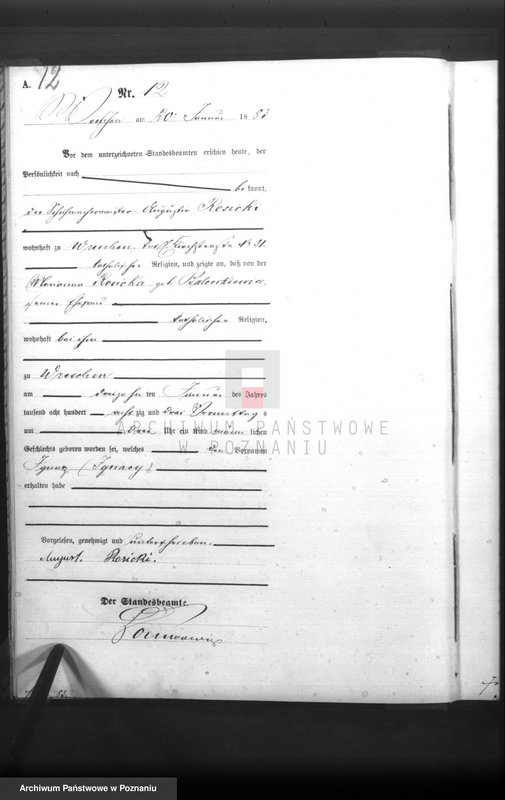 A. 12
Nr. 12
Wreschen am 20 Januar 1883
Vor dem unterzeichneten Standesbeamten erschien heute, der
Persönlichkeit nach
bekannt,
der Schuhmachermeister Augustin Rosicki
wohnhaft zu Wreschen, kath. Kirchstraße № 31
katholischer Religion, und zeigte an, daß von der
Marianna Rosicka geb.
seiner Ehefrau
katholischer Religion,
wohnhaft bei ihm
zu Wreschen
am dreizehnten Januar des Jahres
tausend acht hundert achtzig und drei Vormittags
um drei Uhr ein Kind männlichen
Geschlechts geboren worden sei, welches den Vornamen
Ignaz (Ignacy)
erhalten habe
Vorgelesen, genehmigt und unterschrieben.
August. Rosicki.
Der Standesbeamte.
ARCHIWUM PAŃSTWOWE
W POZNANIU
Archiwum Państwowe w Poznaniu